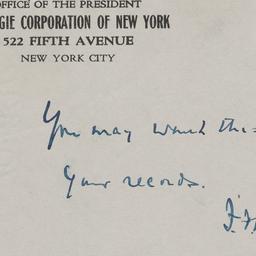 OFFICE OF THE PRESIDENT
GIE CORPORATION OF NEW YORK
522 FIFTH AVENUE
NEW YORK CITY
You may want this
your records.